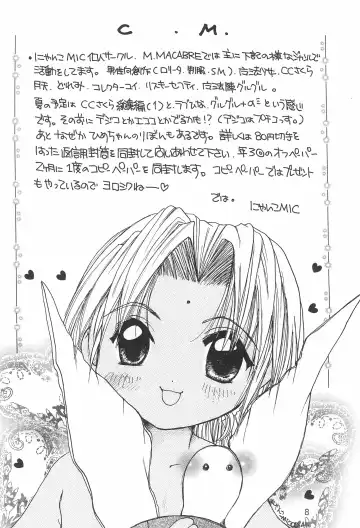 C. M.
・にゃんこMIC 個人サークル、M.MACABREでは主に下記の様なジャンルで
活動をしてます。男性向創作(ロリータ、制服、SM)、CCさくら
コレクターユイ、リスキーセフティ、魔法陣グルグル。
夏の予定はCCさくら総集編(1)と デ・ジ・グルグル+αという感じ
です。その前にデジコとかエコエコとかでるかも!? (デジコはプチコっす。)
あとなぜかひめちゃんのリボンもあるです。詳しくは80円切手を
はった返信用封筒を同封して問いあわせて下さい。年3回のオフペーパー
2ヶ月に1度のコピペーパーを同封します。コピペーパーではプレゼント
もやっているのでヨロシクねー♡
では。
にゃんこMIC
8